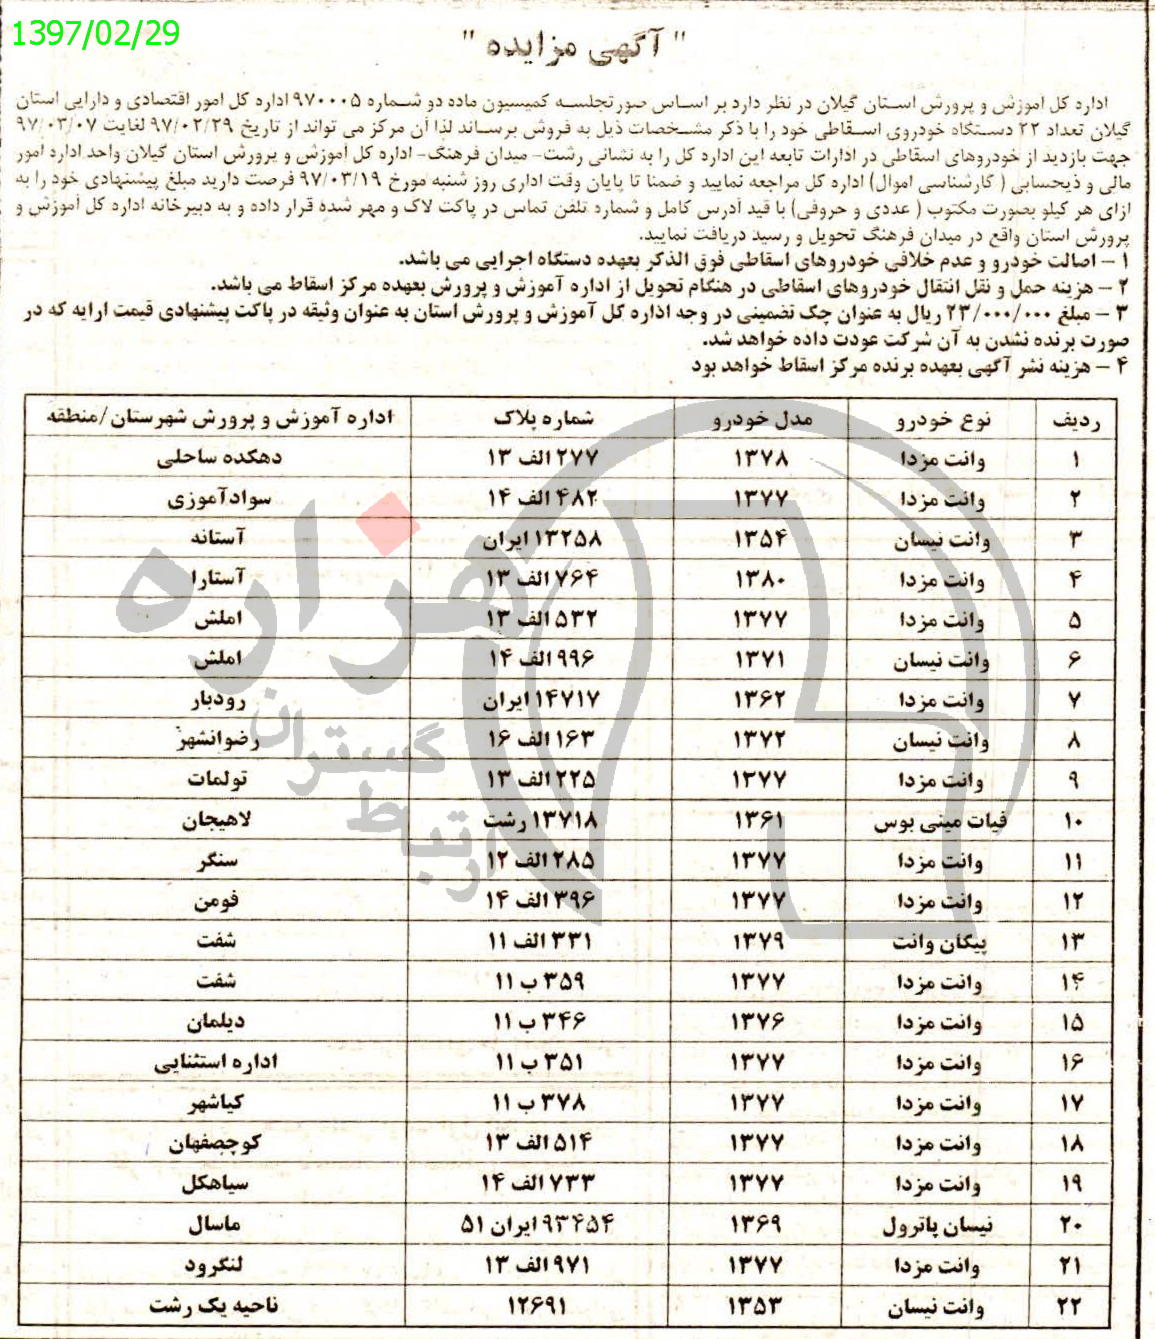 1397/02/29
" آگهی مزایده "
اداره کل آموزش و پرورش استان گیلان در نظر دارد بر اساس صورتجلسه کمیسیون ماده دو شماره ۹۷۰۰۰۵ اداره کل امور اقتصادی و دارایی استان
گیلان تعداد ۲۲ دستگاه خودروی اسقاطی خود را با ذکر مشخصات ذیل به فروش برساند لذا آن مرکز می تواند از تاریخ ۹۷/۰۲/۲۹ لغایت ۹۷/۰۳/۰۷
جهت بازدید از خودروهای اسقاطی در ادارات تابعه این اداره کل را به نشانی رشت- میدان فرهنگ- اداره کل آموزش و پرورش استان گیلان واحد اداره امور
مالی و ذیحسابی ( کارشناسی اموال) اداره کل مراجعه نمایید و ضمنا تا پایان وقت اداری روز شنبه مورخ ۹۷/۰۳/۱۹ فرصت دارید مبلغ پیشنهادی خود را به
ازای هر کیلو بصورت مکتوب ( عددی و حروفی) با قید آدرس کامل و شماره تلفن تماس در پاکت لاک و مهر شده قرار داده و به دبیرخانه اداره کل آموزش و
پرورش استان واقع در میدان فرهنگ تحویل و رسید دریافت نمایید.
۱ – اصالت خودرو و عدم خلافی خودروهای اسقاطی فوق الذکر بعهده دستگاه اجرایی می باشد.
۲ – هزینه حمل و نقل انتقال خودروهای اسقاطی در هنگام تحویل از اداره آموزش و پرورش بعهده مرکز اسقاط می باشد.
۳ – مبلغ ۲۳/۰۰۰/۰۰۰ ریال به عنوان چک تضمینی در وجه اداره کل آموزش و پرورش استان به عنوان وثیقه در پاکت پیشنهادی قیمت ارایه که در
صورت برنده نشدن به آن شرکت عودت داده خواهد شد.
۴ – هزینه نشر آگهی بعهده برنده مرکز اسقاط خواهد بود
ردیف نوع خودرو مدل خودرو شماره پلاک اداره آموزش و پرورش شهرستان/منطقه
۱ وانت مزدا ۱۳۷۸ ۲۷۷ الف ۱۳ دهکده ساحلی
۲ وانت مزدا ۱۳۷۷ ۴۸۲ الف ۱۴ سوادآموزی
۳ وانت نیسان ۱۳۵۴ ۱۳۲۵۸ ایران آستانه
۴ وانت مزدا ۱۳۸۰ ۷۶۴ الف ۱۳ آستارا
۵ وانت مزدا ۱۳۷۷ ۵۳۲ الف ۱۳ املش
۶ وانت نیسان ۱۳۷۱ ۹۹۶ الف ۱۴ املش
۷ وانت مزدا ۱۳۶۲ ۱۴۷۱۷ ایران رودبار
۸ وانت نیسان ۱۳۷۲ ۱۶۳ الف ۱۶ رضوانشهر
۹ وانت مزدا ۱۳۷۷ ۲۲۵ الف ۱۳ تولمات
۱۰ فیات مینی بوس ۱۳۶۱ ۱۳۷۱۸ رشت لاهیجان
۱۱ وانت مزدا ۱۳۷۷ ۲۸۵ الف ۱۲ سنگر
۱۲ وانت مزدا ۱۳۷۷ ۳۹۶ الف ۱۴ فومن
۱۳ پیکان وانت ۱۳۷۹ ۳۳۱ الف ۱۱ شفت
۱۴ وانت مزدا ۱۳۷۷ ۳۵۹ ب ۱۱ شفت
۱۵ وانت مزدا ۱۳۷۶ ۳۴۶ ب ۱۱ دیلمان
۱۶ وانت مزدا ۱۳۷۷ ۳۵۱ ب ۱۱ اداره استثنایی
۱۷ وانت مزدا ۱۳۷۷ ۳۷۸ ب ۱۱ کیاشهر
۱۸ وانت مزدا ۱۳۷۷ ۵۱۴ الف ۱۳ کوچصفهان
۱۹ وانت مزدا ۱۳۷۷ ۷۳۳ الف ۱۴ سیاهکل
۲۰ نیسان پاترول ۱۳۶۹ ۹۳۴۵۴ ایران ۵۱ ماسال
۲۱ وانت مزدا ۱۳۷۷ ۹۷۱ الف ۱۳ لنگرود
۲۲ وانت نیسان ۱۳۵۳ ۱۲۶۹۱ ناحیه یک رشت
هزاره
گستران
ارتباط